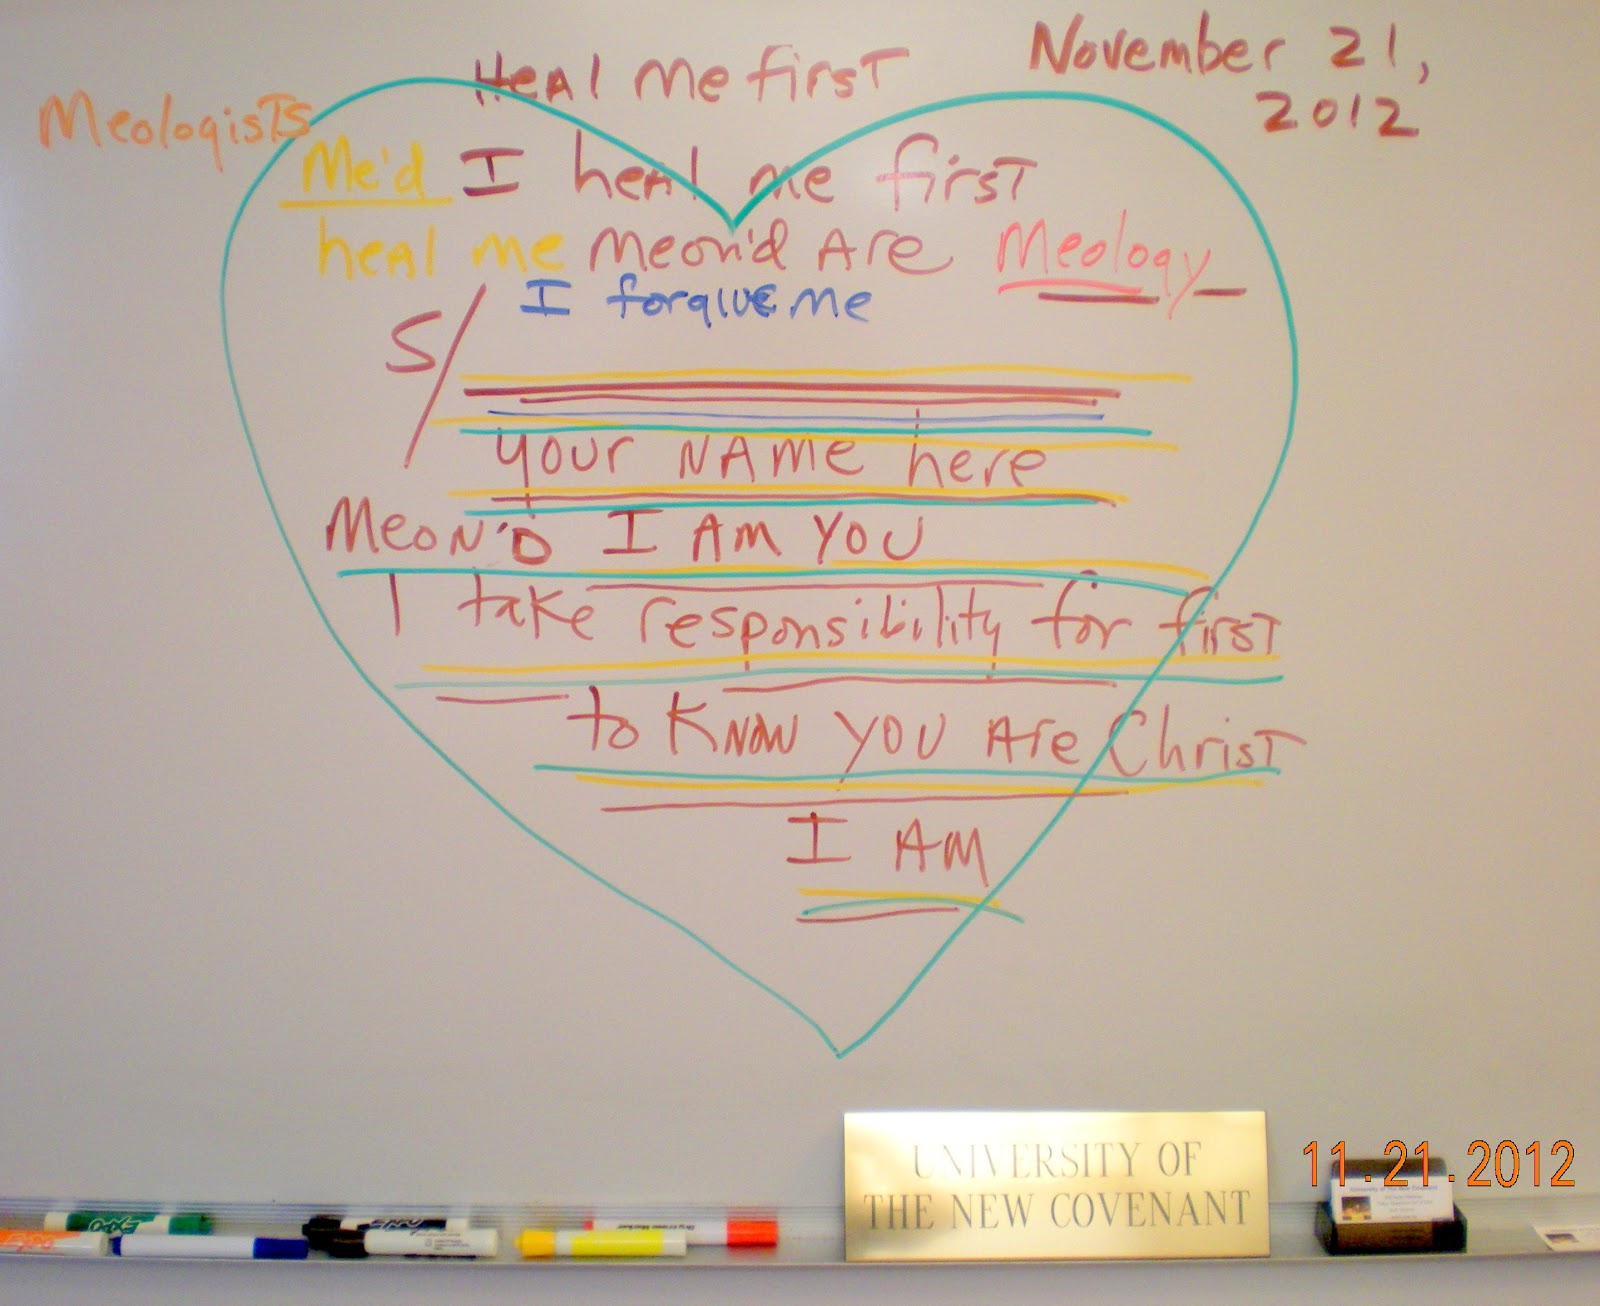 Heal me first
November 21,
2012
Meologists
Me'd I heal me first
heal me Meon'd Are Meology
I forgive me
S/
your name here
Meon'd I AM YOU
I take responsibility for first
to know you are Christ
I AM
UNIVERSITY OF
THE NEW COVENANT
11.21.2012
University of The New Covenant
EXPO